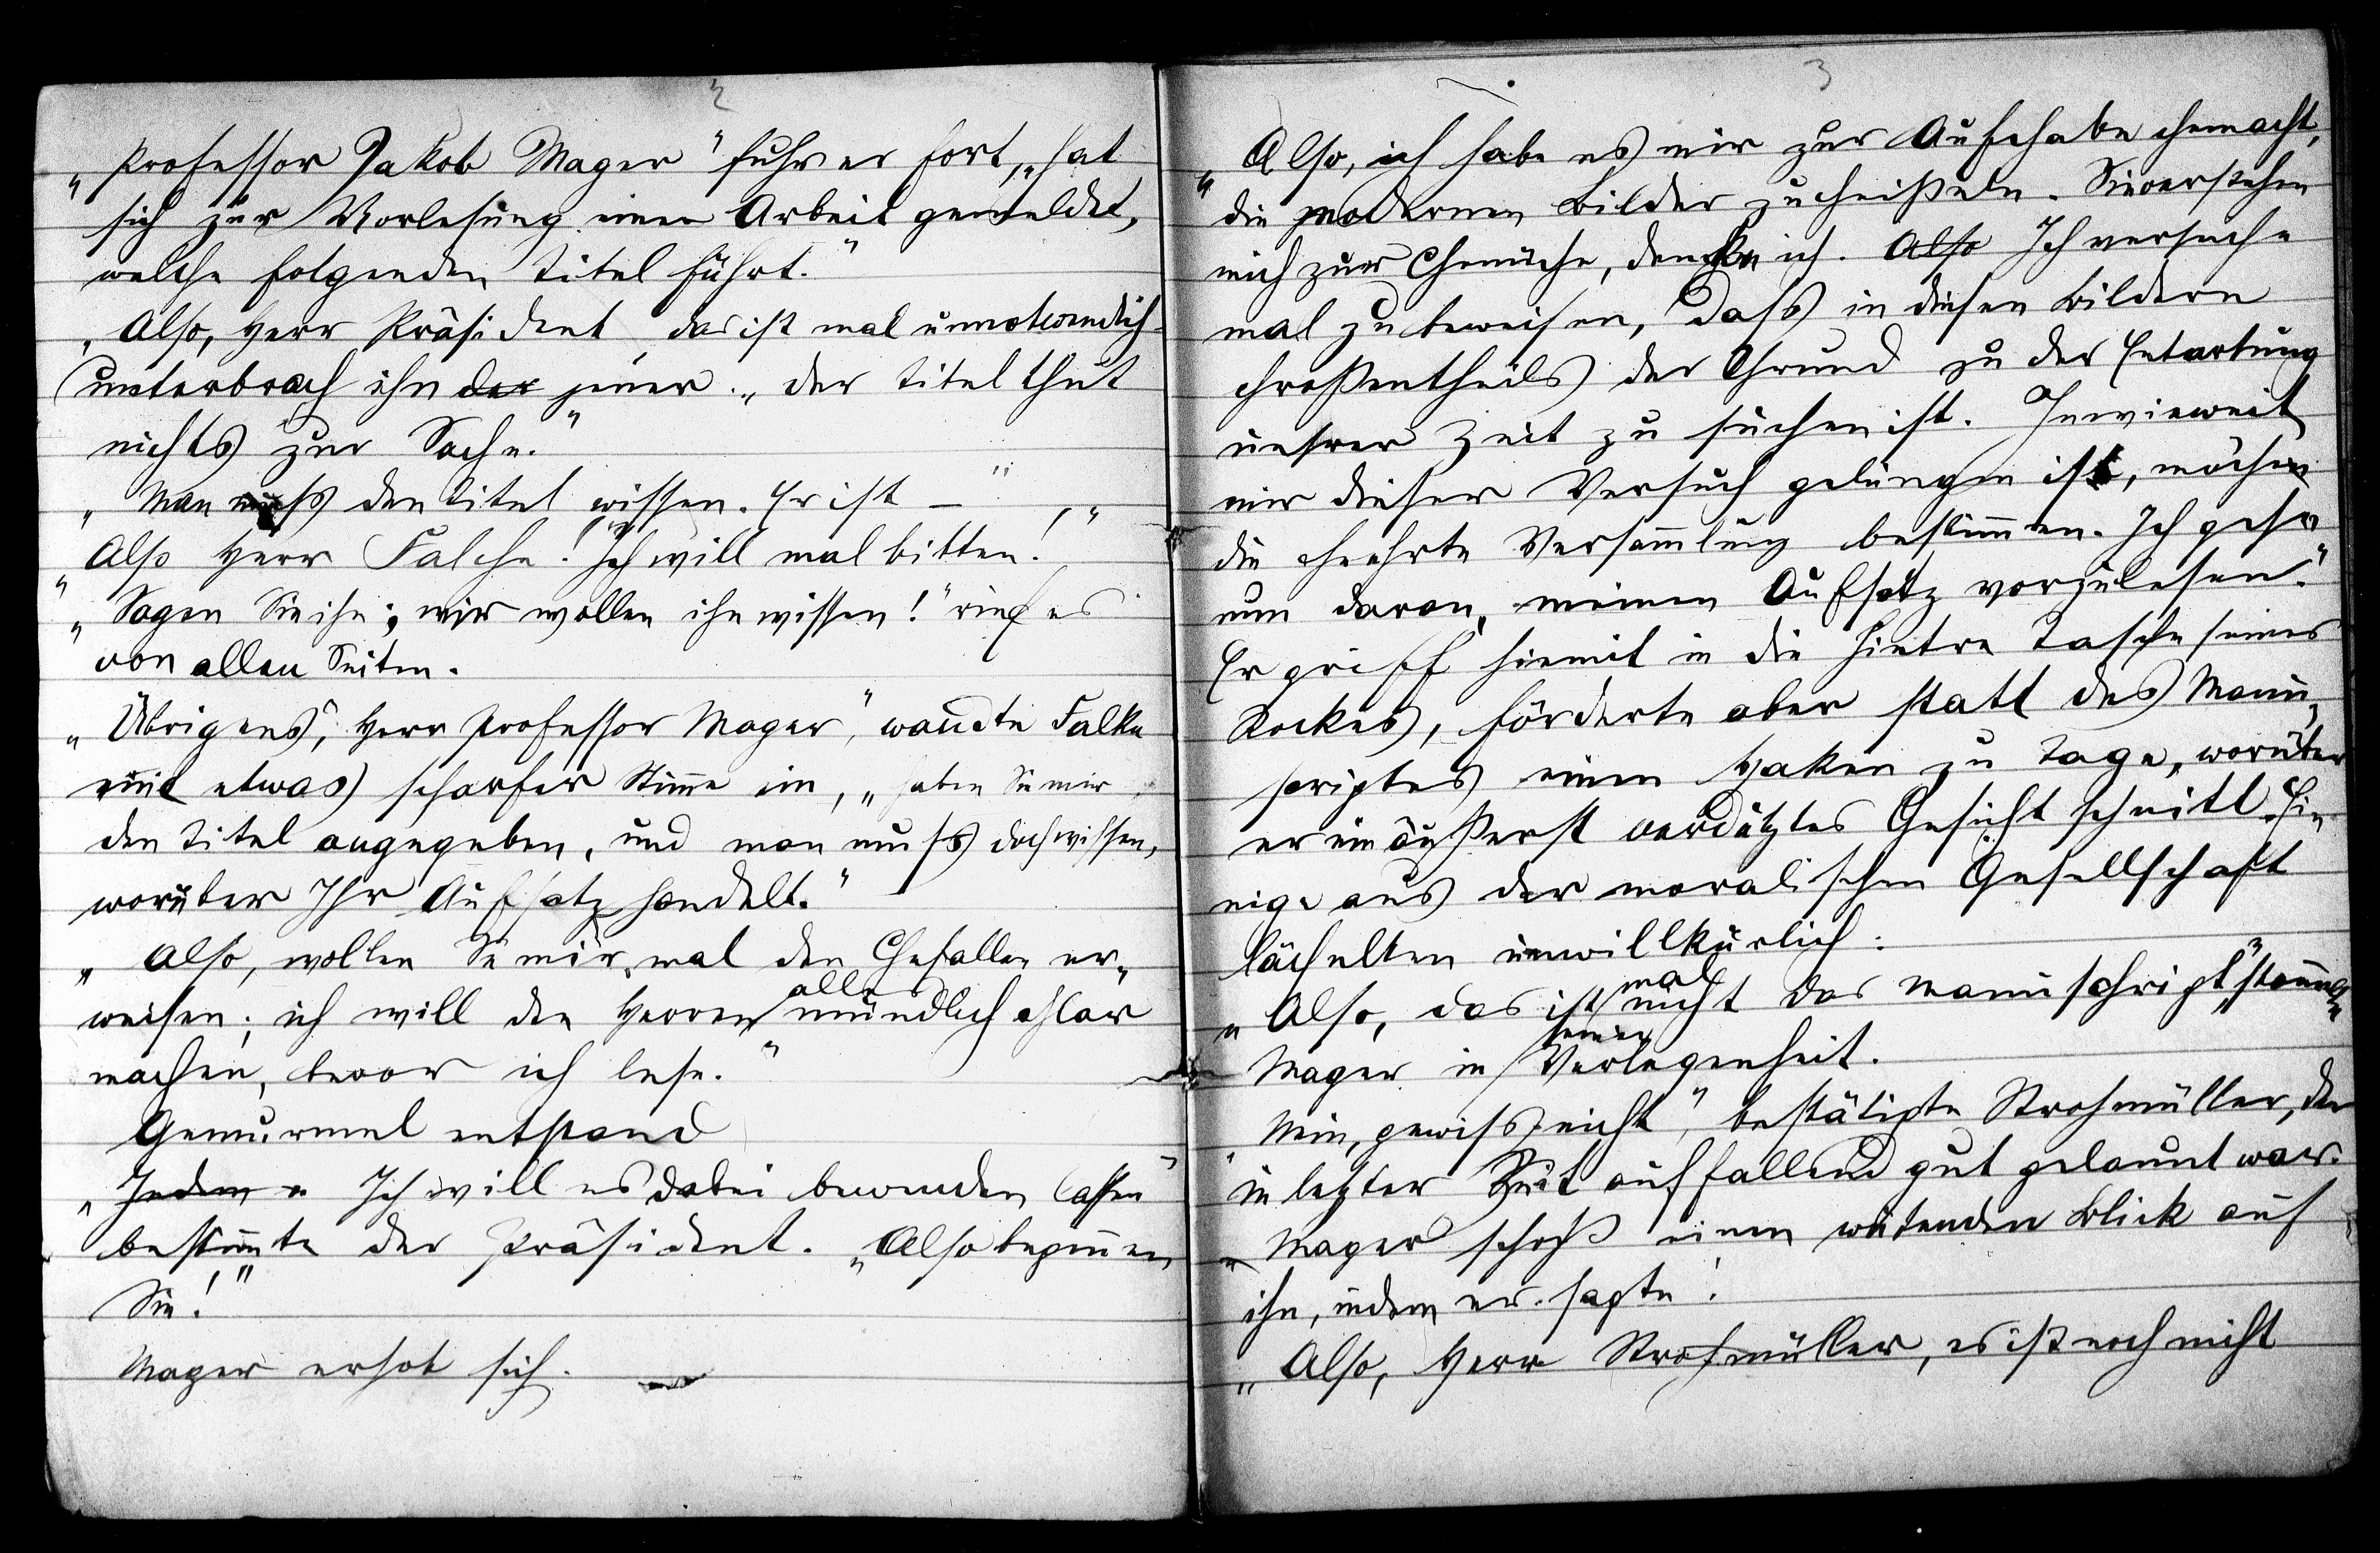 2
„Professor Jakob Mager" fuhr er fort, „hat
sich zur Vorlesung einer Arbeit gemeldet,
welche folgenden Titel führt."
„Also, Herr Präsident, das ist mal unnotwendich"
unterbrach ihn der jener. „der Titel thut
nichts zur Sache."
„Man muß den Titel wissen. Er ist – "
„Also Herr Falche! Ich will mal bitten!"
„Sagen Sie ihn; wir wollen ihn wissen!" rief es
von allen Seiten.
„Übrigens, Herr Professor Mager", wandte Falke
mit etwas scharfer Stimme ein, „haben Sie mir
den Titel angegeben, und man muß doch wissen,
worüber Ihr Aufsatz handelt."
„Also, wollen Sie mir mal den Chefallen er„
weisen; ich will den Herren alles mündlich chlar
machen, bevor ich lese."
Gemurmel entstand
„Indem „ Ich will es dabei bewenden lassen"
bestimmte der Präsident. „Also beginnen
Sie!"
Mager erhob sich.
3
„Also, ich habe es mir zur Aufchabe chemacht,
die modernen Bilder zu cheißeln. Sie verstehen
mich zur Chenüche, denche ich. Also Ich versuche
mal zu beweisen, daß in diesen Bildern
chroßentheils der Chrund zu der Entartung
unsrer Zeit zu suchen ist. Inwieweit
mir dieser Versuch gelungen ist, möche
die cheehrte Versammlung bestimmen. Ich gehe
nun daran, meinen Aufsatz vorzulesen."
Er griff hiemit in die hintre Tasche seines
Rockes, förderte aber statt des Manu„
scriptes einen Haken zu Tage, worüber
er ein äußerst verdutztes Gesicht schnitt. Ei„
nige aus der moralischen Gesellschaft
lächelten unwillkürlich:
„Also, das ist mal nicht das Manuschript", stammelte
Mager in seiner Verlegenheit.
„Nein, gewiß nicht", bestätigte Strohmüller, der
in letzter Zeit auffallend gut gelaunt war.
„Mager schoß einen wütenden Blick auf
ihn, indem er sagte:
„Also, Herr Strohmüller, es ist noch nicht